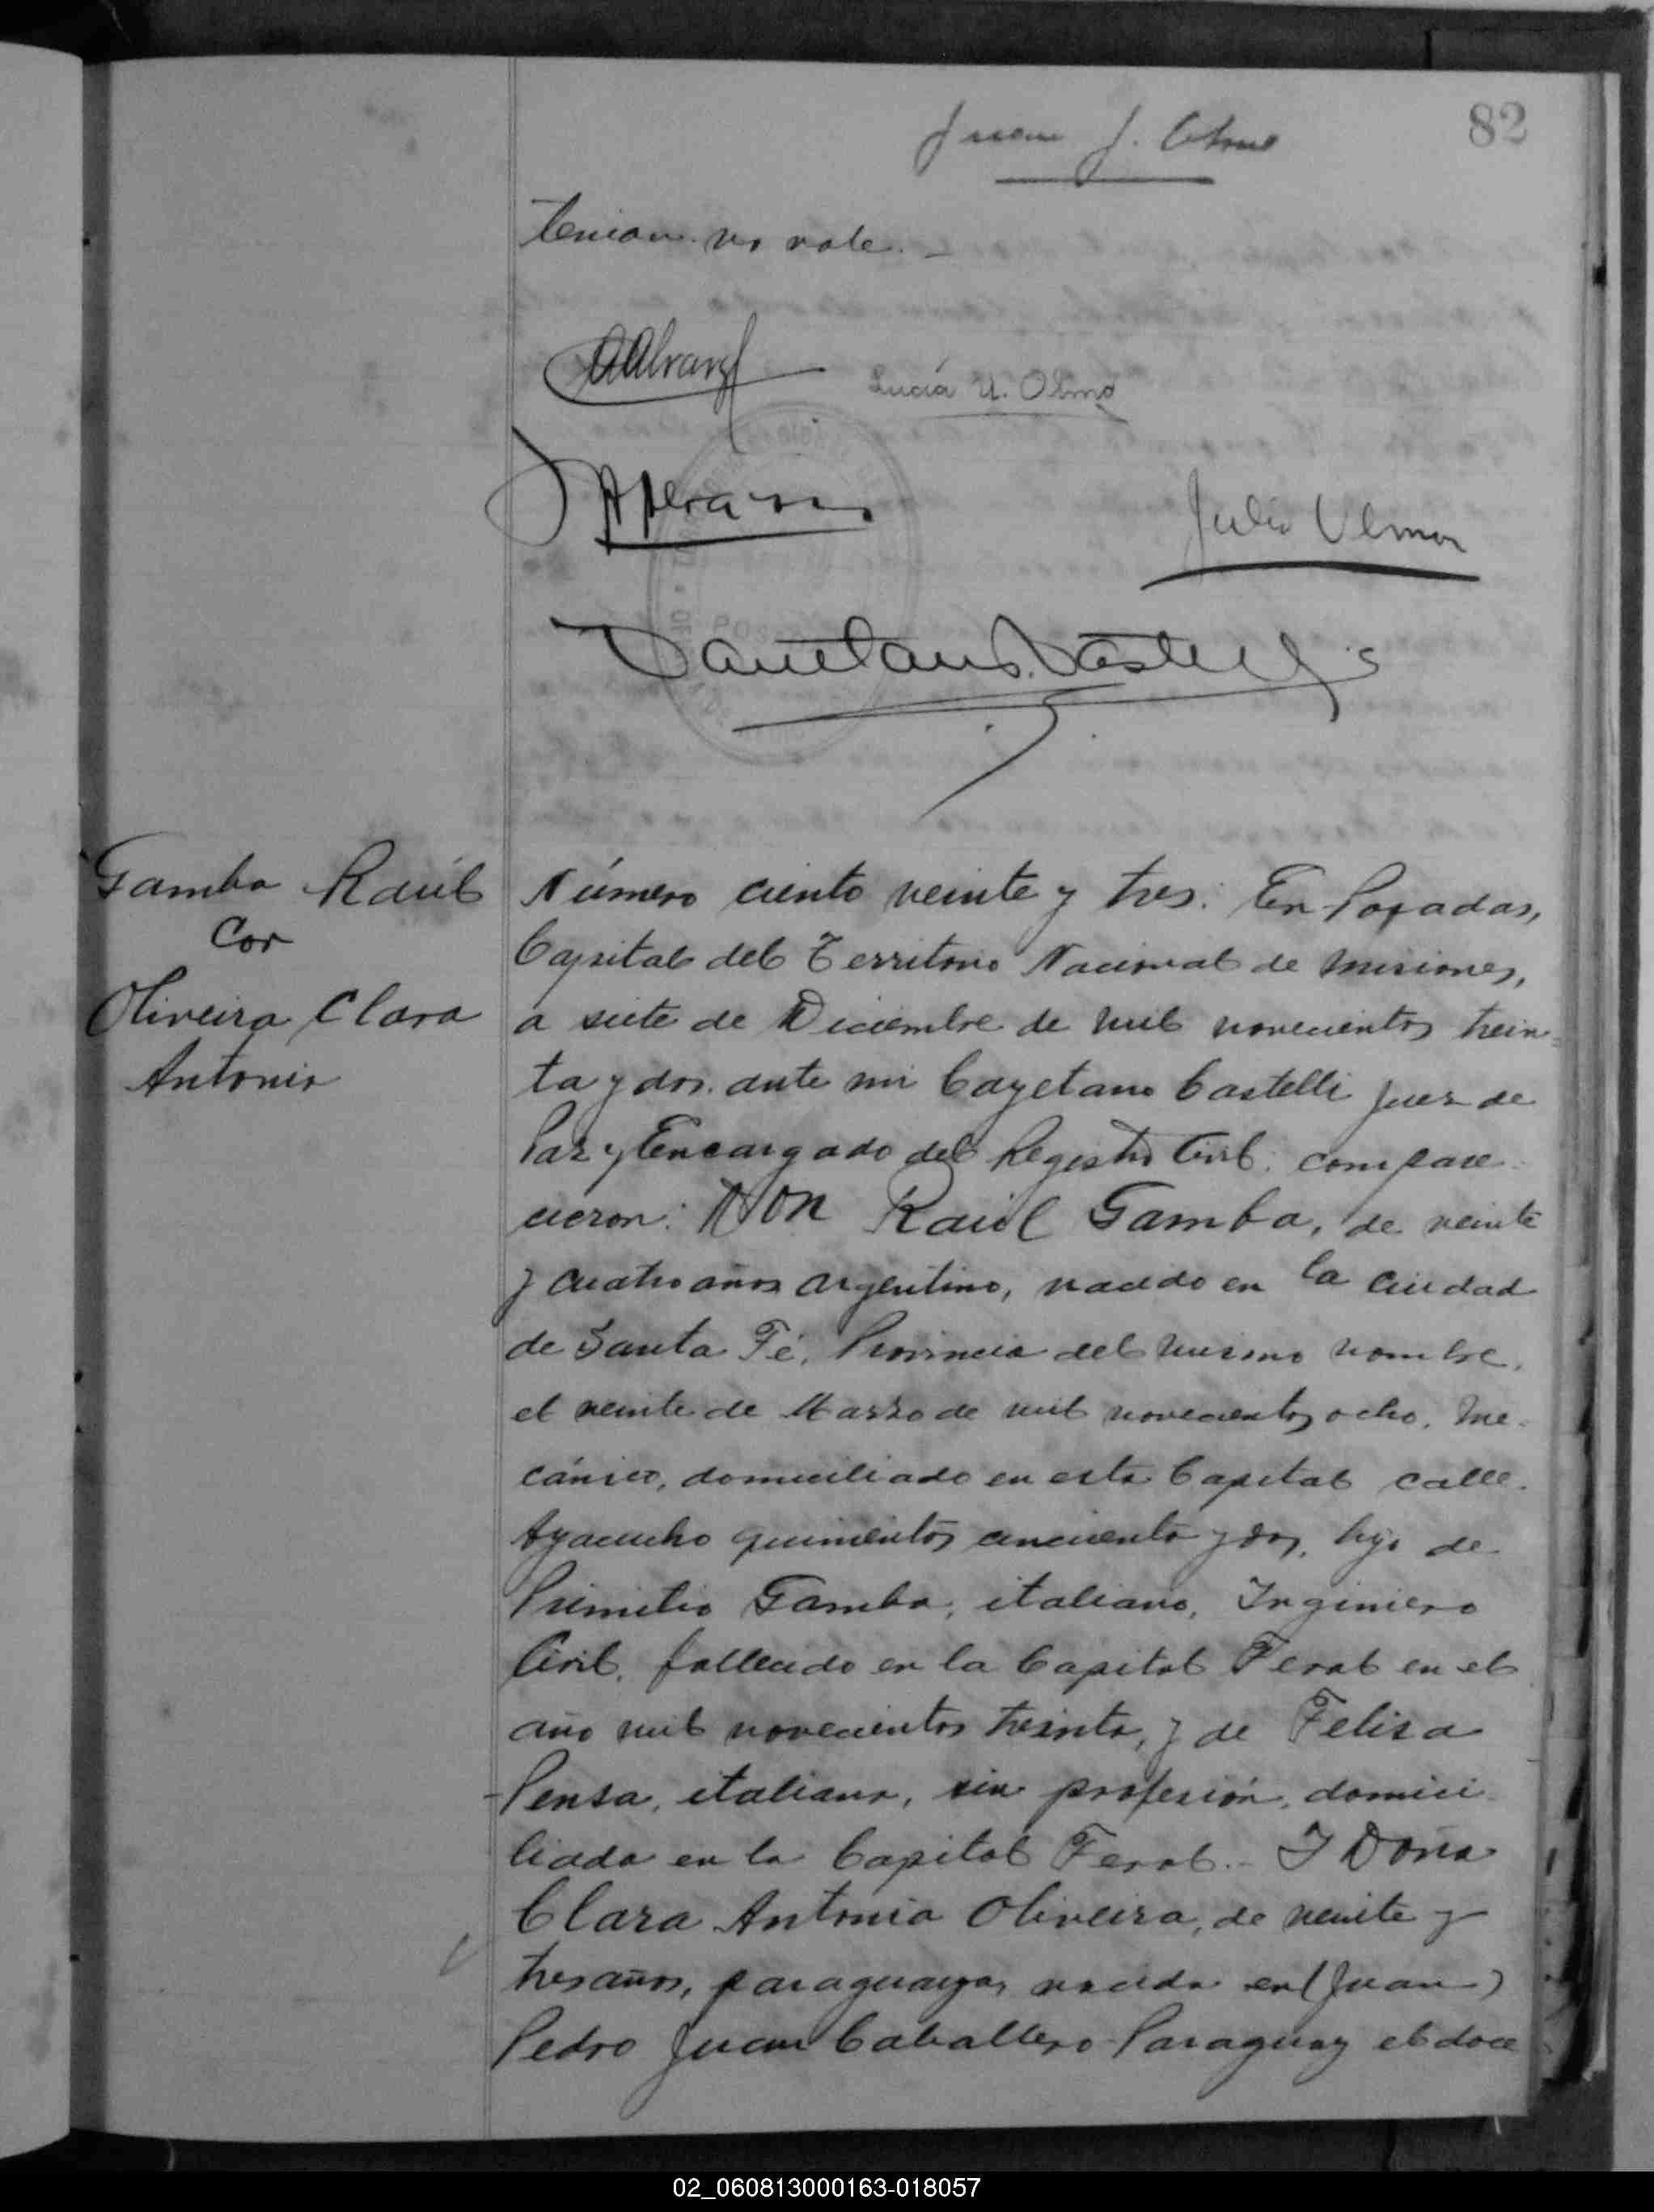 82
Juan J. Olmo
tenian. no vale. -
Lucía U. Olmo
Julio Olmo
Cayetano Castelli
Gamba Raúl
Con
Oliveira Clara
Antonia
Número ciento veinte y tres: En Posadas,
Capital del Territorio Nacional de Misiones,
a siete de Diciembre de mil novecientos trein-
ta y dos. ante mi Cayetano Castelli Juez de
Paz y Encargado del Registro Civil: compare-
cieron: Don Raúl Gamba, de veinte
y cuatro años argentino, nacido en la ciudad
de Santa Fé, Provincia del mismo nombre,
el veinte de Marzo de mil novecientos ocho. me-
cánico, domiciliado en esta Capital calle
Ayacucho quinientos cincuenta y dos, hijo de
Gamba, italiano, Ingeniero
Civil, fallecido en la Capital Feral en el
año mil novecientos treinta, y de Felisa
Pensa, italiana, sin profesión, domici-
liada en la Capital Feral.- Y Doña
Clara Antonia Oliveira, de veinte y
tres años, paraguaya, nacida en (Juan)
Pedro Juan Caballero Paraguay el doce
02_060813000163-018057